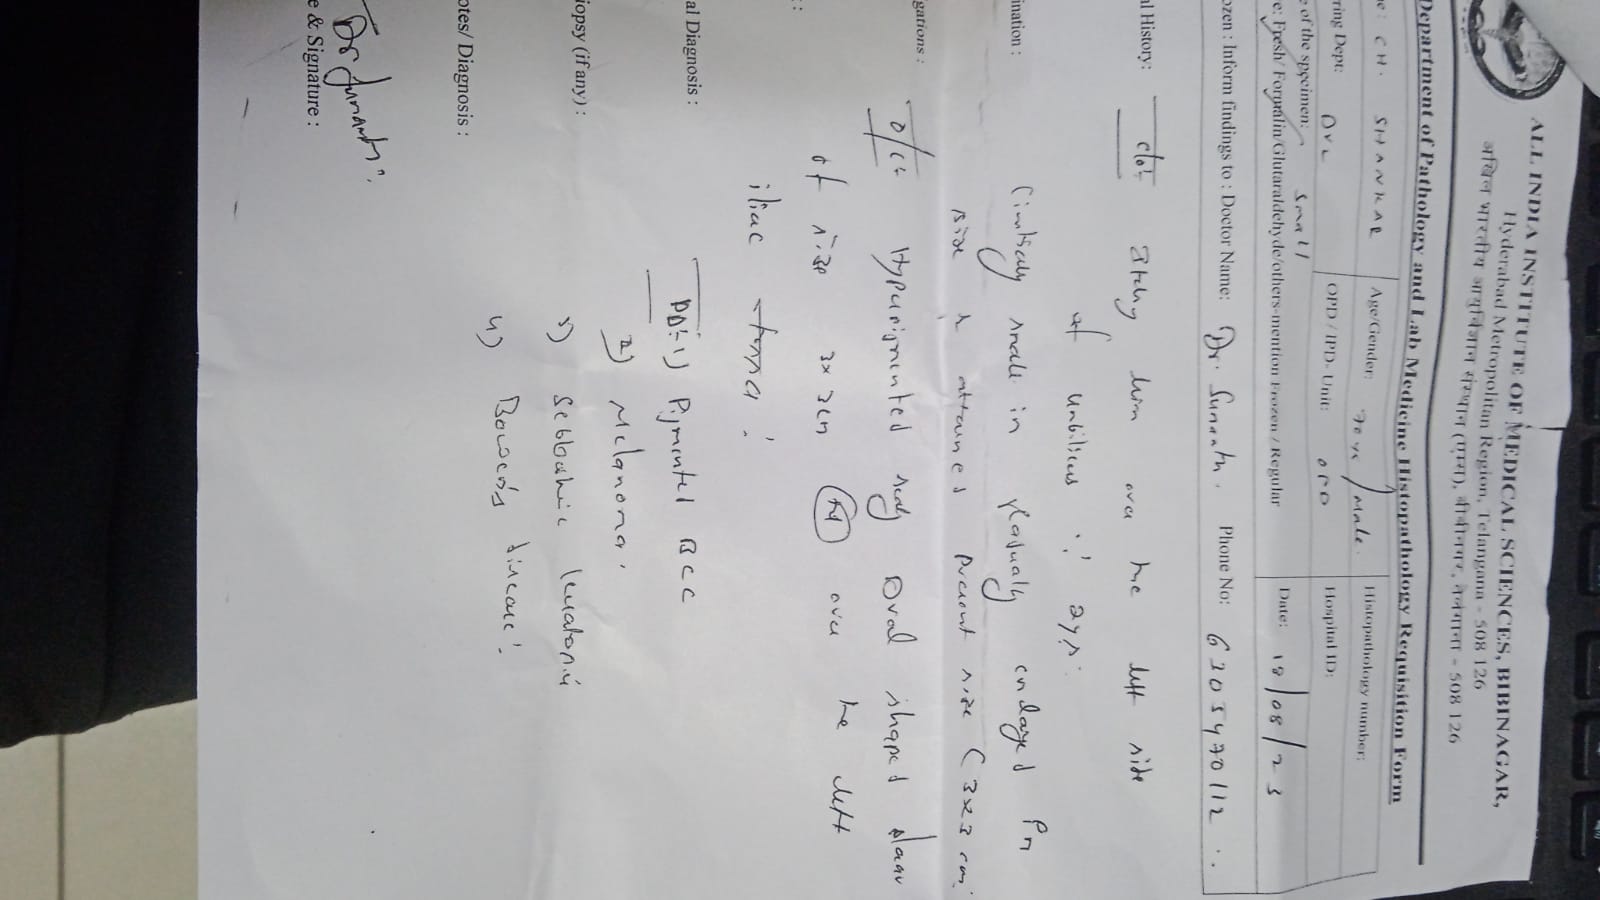 ALL INDIA INSTITUTE OF MEDICAL SCIENCES, BIBINAGAR,
Hyderabad Metropolitan Region, Telangana - 508 126
अखिल भारतीय आयुर्विज्ञान संस्थान (एम्स), बीबीनगर, तेलंगाना - 508 126
Department of Pathology and Lab Medicine Histopathology Requisition Form
me : CH. SHANKAR Age/Gender: 70 yr / Male. Histopathology number:
ring Dept: DVL OPD / IPD- Unit: OPD Hospital ID:
e of the specimen: Small Date: 18/08/23
re: Fresh/ Formalin/Glutaraldehyde/others-mention Frozen / Regular
ozen : Inform findings to : Doctor Name: Dr. Sumanth. Phone No: 6305470112
al History: c/o Itchy over the left side
of umbilicus : 2 yrs.
ination : Initially small in gradually enlarged in
size & attained present size (3x3 cm)
gations : O/E Hyperpigmented scaly oval shaped plaque
of size 3x3cm over the left
iliac fossa.
al Diagnosis : DD:- 1) Pigmented BCC
2) Melanoma.
3) Sebbohic keratosis
iopsy (if any) : 4) Bowen's disease.
otes/ Diagnosis :
e & Signature :
Dr Sumanth